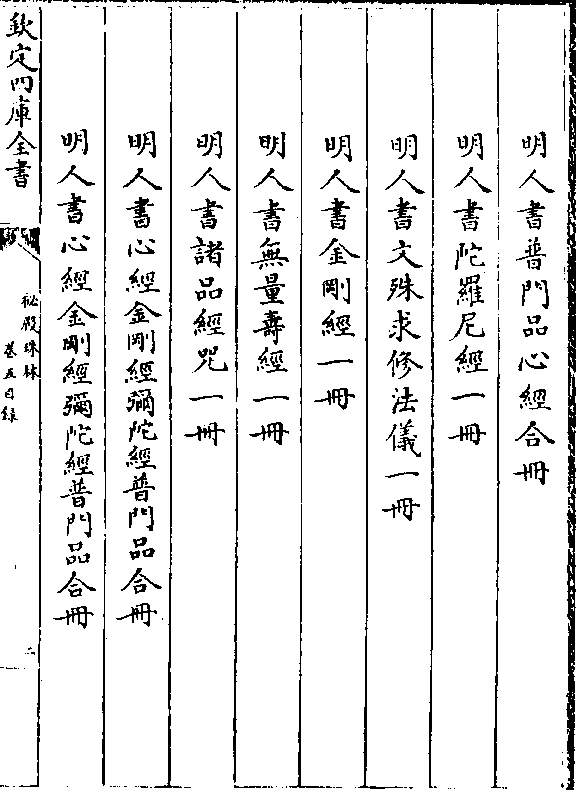 明人書普門品心經合冊
明人書陀羅尼經一冊
明人書文殊求修法儀一冊
明人書金剛經一冊
明人書無量壽經一冊
明人書諸品經咒一冊
明人書心經金剛經彌陀經普門品合冊
明人書心經金剛經彌陀經普門品合冊
欽定四庫全書
秘殿珠林
卷五目錄
二